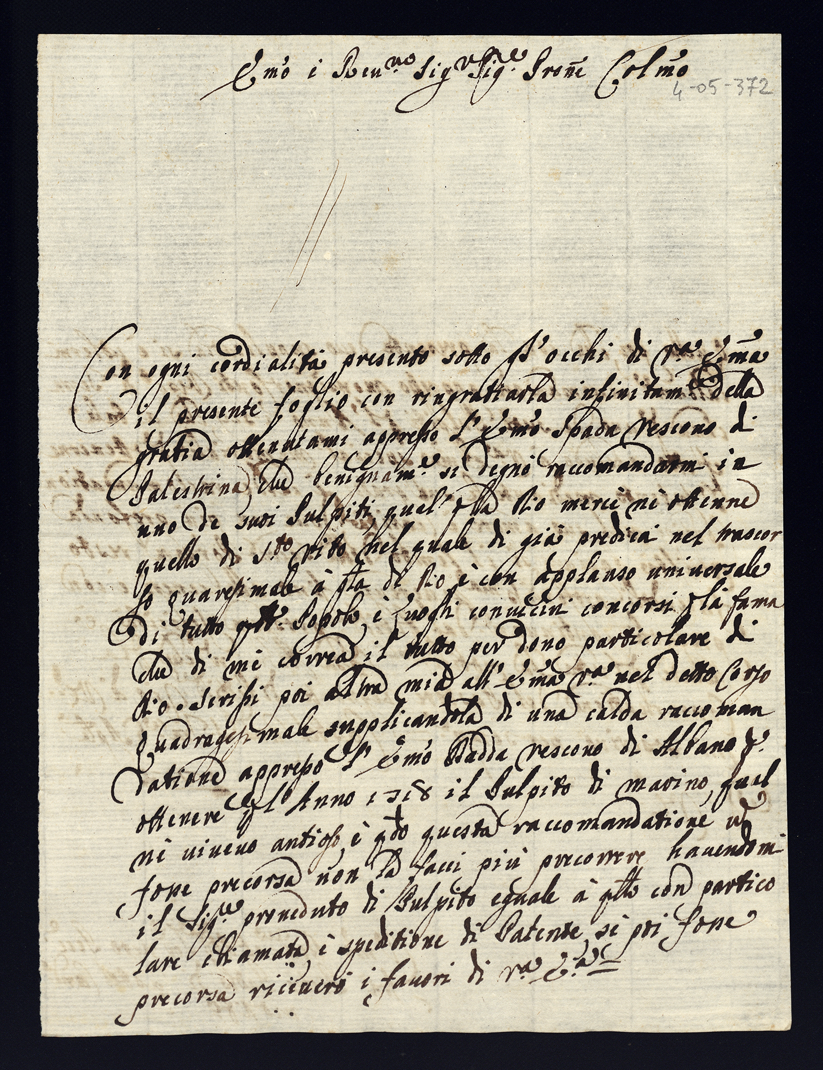 Em̃o i Reu.mo Sig.r Sig.re Prone Colmo
4-05-372
Con ogni cordialità presento sotto gl'occhi di V.a Em̃a
il presente foglio con ringratiarla infinitam.te della
gratia ottenutami appresso l'Em̃o Spada Vescouo di
Palestrina, che benignam.e si degnò raccomandarmi in
uno de suoi Pulpiti, quel' alla Dio mercè ni ottenne
quello di S.to Vito nel quale di già predicai nel trascor
so quaresimale à gta di Dio i con applauso uniuersale
di tutto qto Popolo, i luoghi conuicini concorsi p la fama
che di me correa il tutto per dono particolare di
Dio. Scrissi poi altra mia all'Em̃a V.a nel detto Corso
Quadragesimale supplicandola di una calda raccoman
datione appresso l'Em̃o Badda Vescouo di Albano p.
ottenere pl'Anno 1718 il Pulpito di marino, quel
ni uiueuo antioso, i qdo questa raccomandatione
fosse precorsa non la facci più precorrere hauendomi
il Sig.re preueduto di Pulpito eguale à qto con partico
lare chiamata i speditione di Patente, si poi fosse
precorsa riceuerò i fauori di V.a E.a